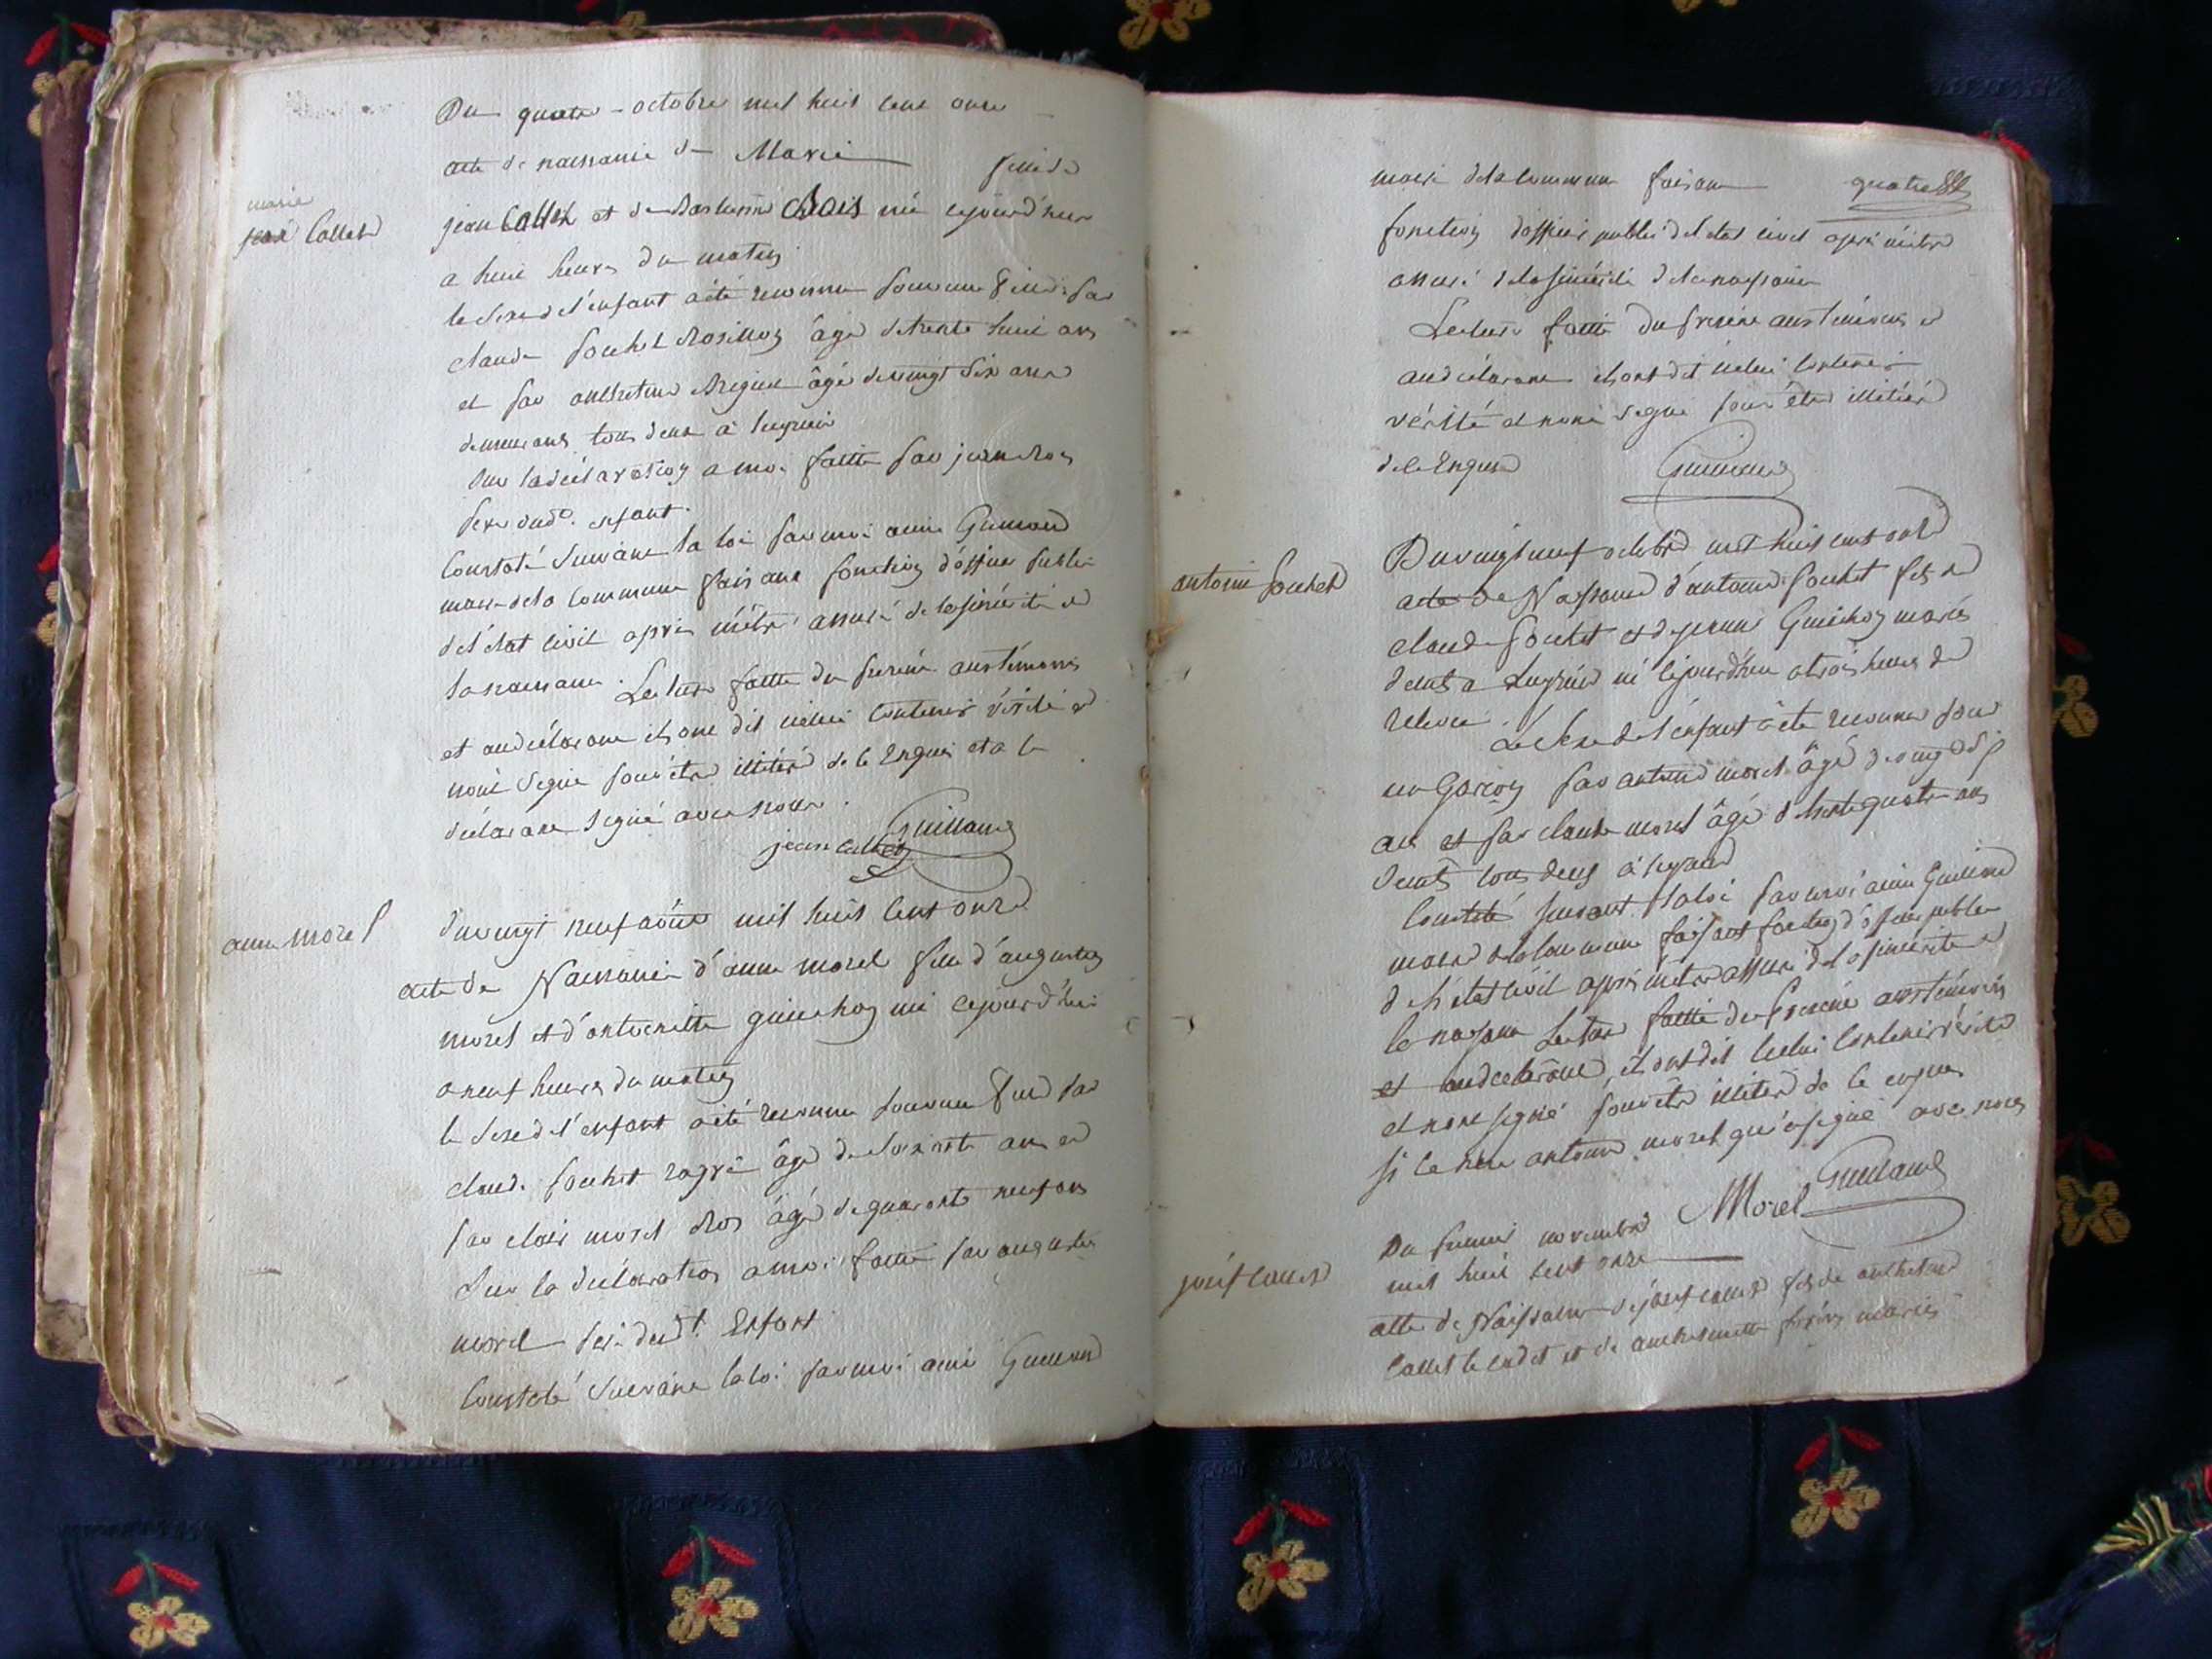 Du quatre octobre mil huit cent onze
acte de naissance de Marie fille de
marie
jean Collet
jean Collet et de Bois née cejourd'huy
a huit heures du matin
le sexe de l'enfant a été reconnu pour une fille par
claude pouchet âgé de trente huit ans
et par anthoine âgé de vingt six ans
demeurans tous deux à
sur la déclaration a moi faitte par jean
pere dud. enfant.
Constaté suivant la loi par moi
maire de la commune faisant fonction d'officier public
de l'état civil après m'être assuré de la sincérité de
la naissance. Lecture faitte du present aux témoins
et au déclarant ils ont dit icelui contenir vérité et
n'ont signé pour être illitéré de le enquis et a le
déclarant signé avec nous.
jean collet
anne morel
du vingt neuf mil huit cent onze
acte de Naissance d'anne morel fille d'augustin
morel et d'antoinette née cejourd'hui
a neuf heures du matin
le sexe de l'enfant a été reconnu pour une fille par
claude pouchet âgé de soixante ans et
par clair morel âgé de quarante neuf ans
sur la déclaration a moi faitte par augustin
morel pere dud.t Enfant
Constaté suivant la loi par moi
maire de la commune faisant quatre
fonction d'officier public de l'etat civil après m'être
assuré de la sincérité de la naissance
Lecture faitte du present aux témoins et
au déclarant ils ont dit icelui contenir
vérité et n'ont signé pour être illitéré
de le Enquis
antoine pouchet
Du vingt neuf octobre mil huit cent onze
acte de Naissance d'antoine pouchet fils de
claude pouchet et de jeanne mariés
deurts a né cejourd'hui a trois heures de
Le sexe de l'enfant a été reconnu pour
un Garçon par antoine morel âgé de vingt six
ans et par claude morel âgé de trente quatre ans
deurts tous deux à
Constaté suivant la loi par moi
maire de la commune faisant fonction d'officier public
de l'état civil après m'être assuré de la sincérité de
le naissance Lecture faitte du present aux témoins
et au declarant, ils ont dit icelui contenir vérité
et n'ont signé pour être illitéré de le enquis
si ce n'est antoine morel qui a signé avec nous
Morel
Du premier novembre
mil huit cent onze
josef collet
acte de Naissance de josef collet fils de anthoine
collet le cadet et de mariés